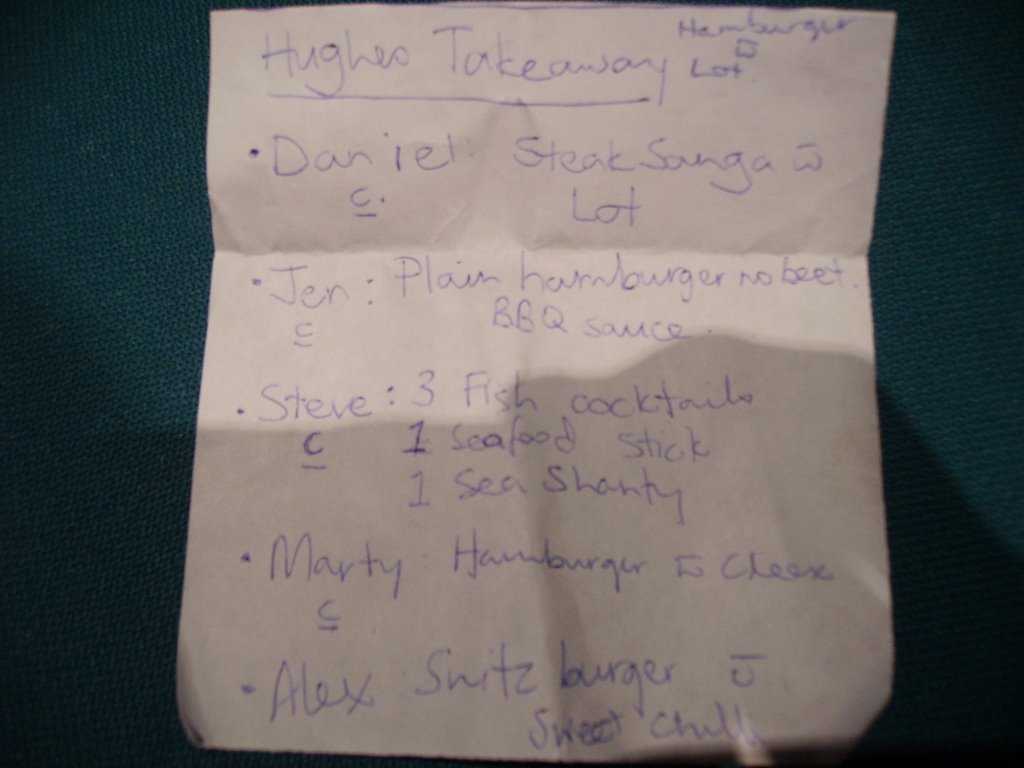 Hughes Takeaway
Hamburger
w̄
Lot.
• Daniel: Steak Sanga w̄
c. Lot
• Jen: Plain hamburger no beet.
c BBQ sauce.
• Steve: 3 Fish cocktails
c 1 seafood stick
1 Sea Shanty
• Marty: Hamburger w̄ Cheese
c
• Alex Snitz burger w̄
Sweet Chilli